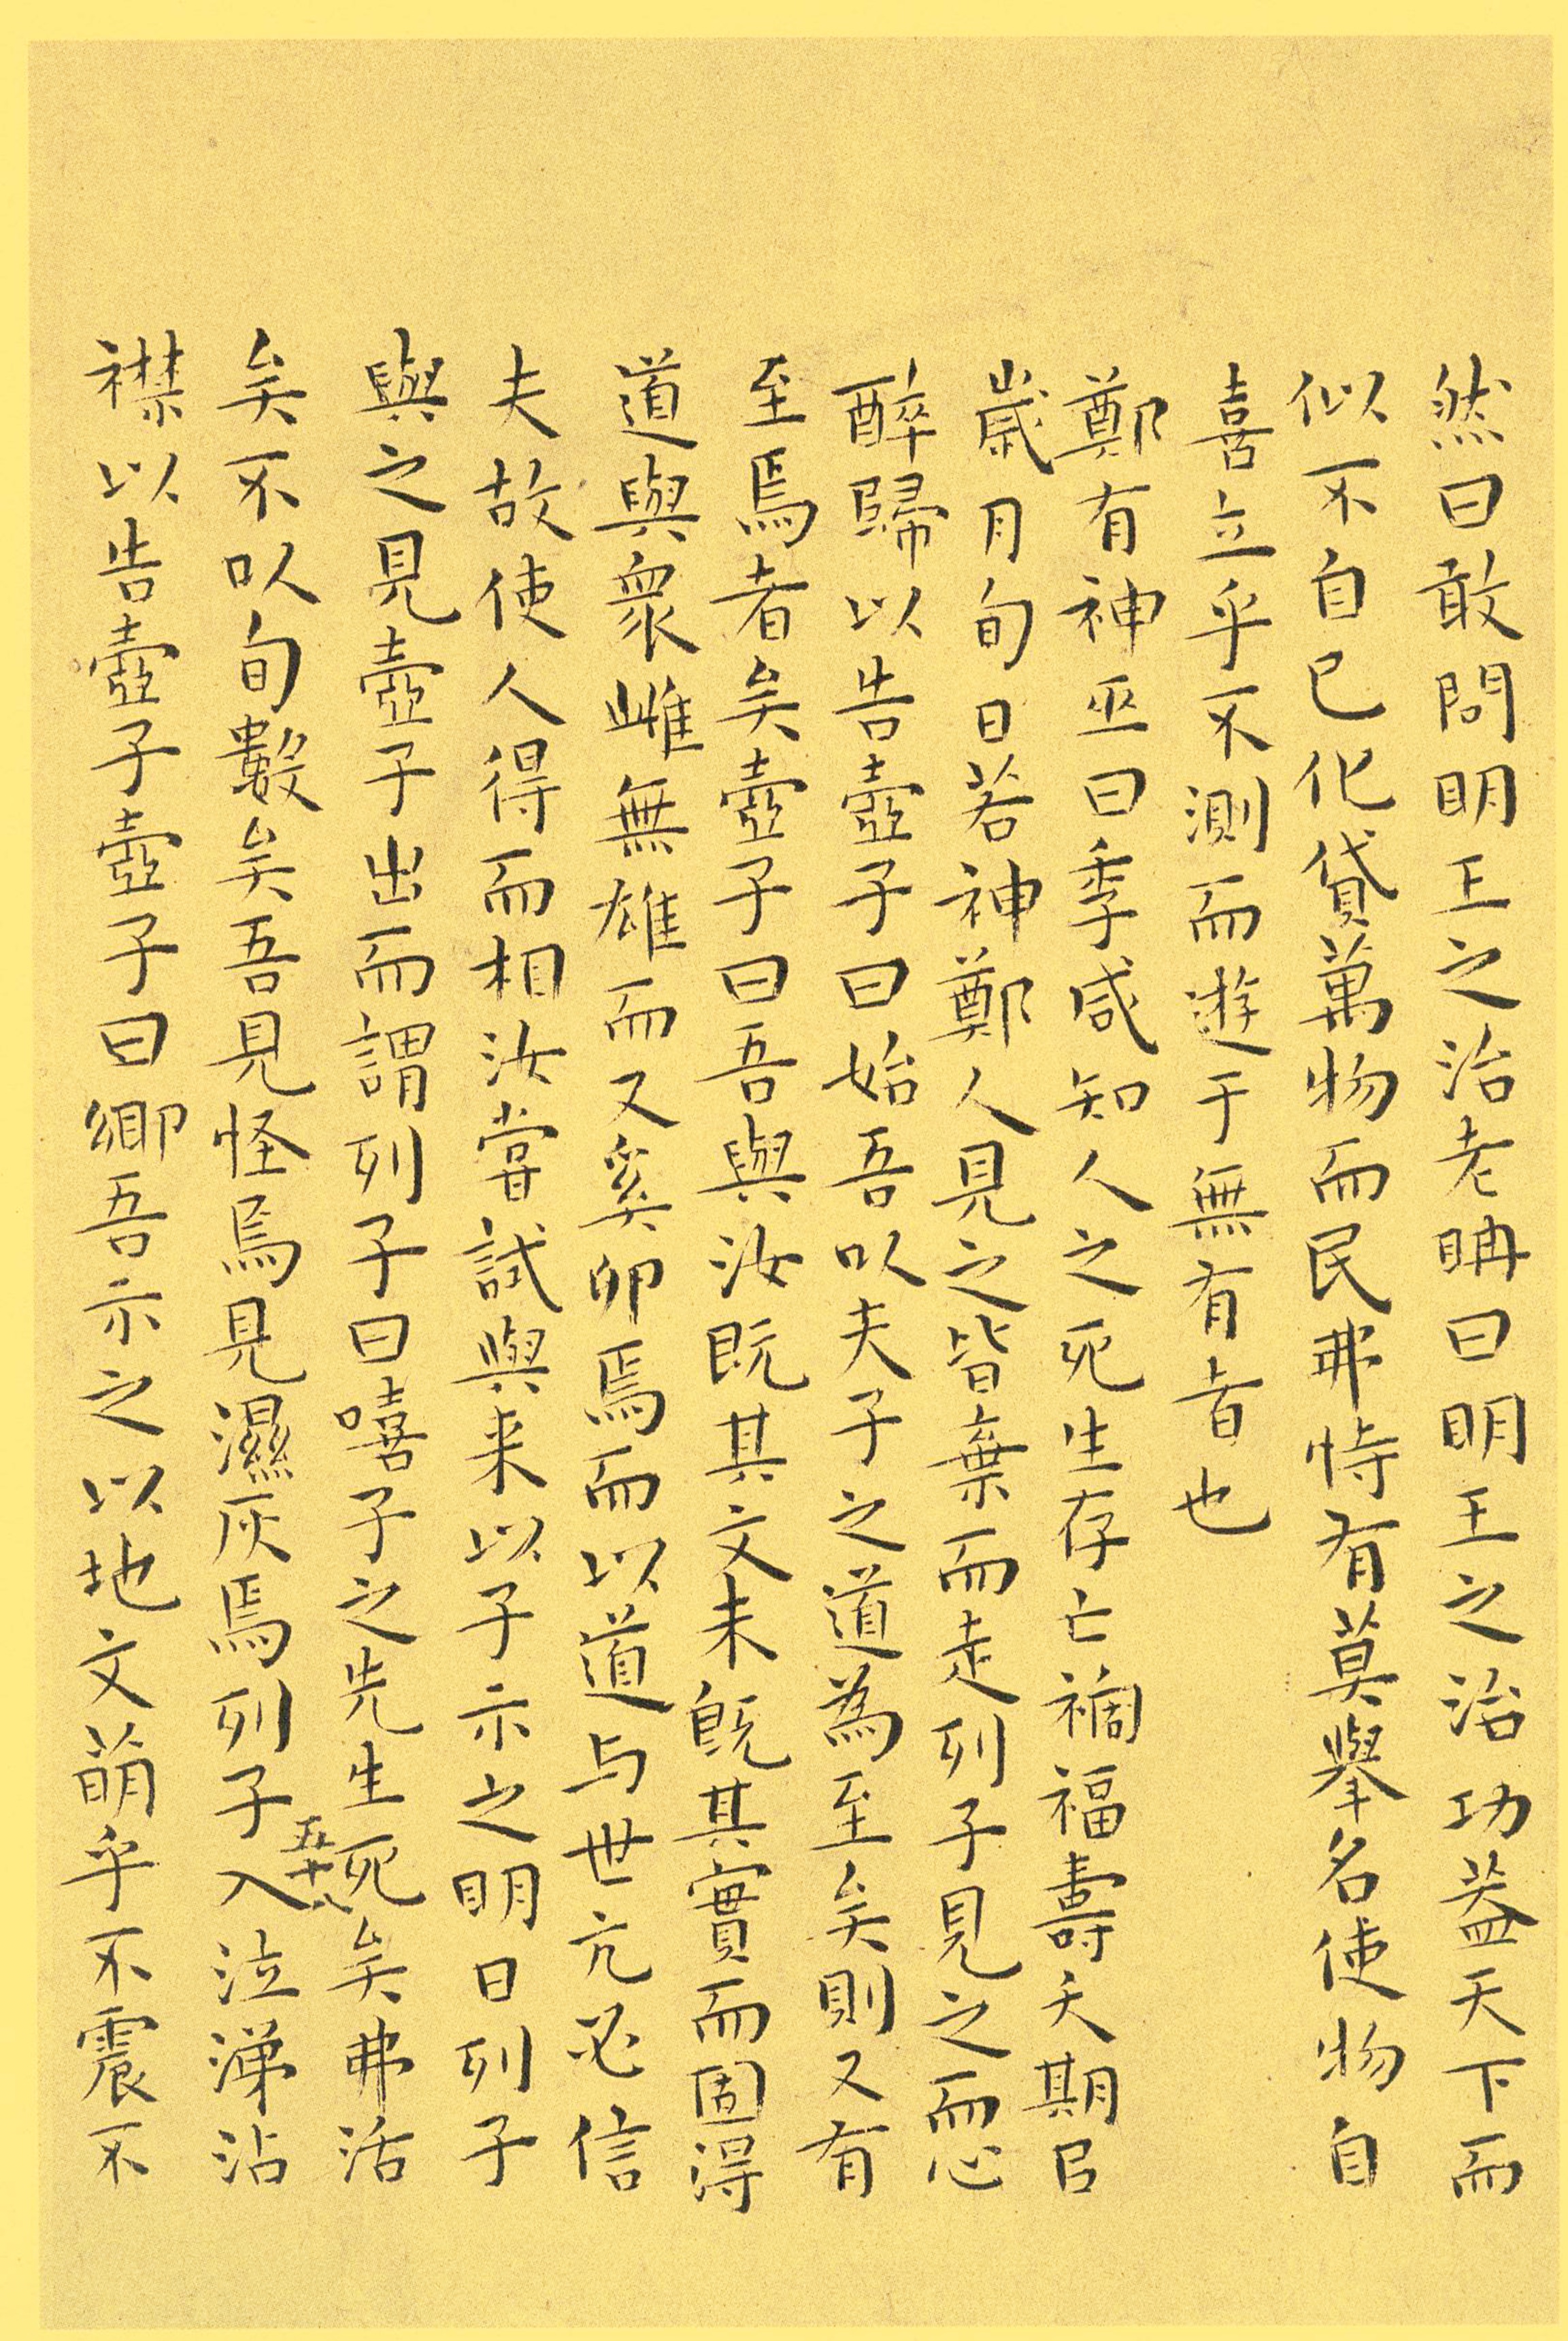 然曰敢問明王之治老聃曰明王之治功蓋天下而
似不自已化貸萬物而民弗恃有莫舉名使物自
喜立乎不測而遊于無有者也
鄭有神巫曰季咸知人之死生存亡禍福壽夭期以
歲月旬日若神鄭人見之皆棄而走列子見之而心
醉歸以告壺子曰始吾以夫子之道為至矣則又有
至焉者矣壺子曰吾與汝既其文未既其實而固得
道與衆雌無雄而又奚卵焉而以道与世亢必信
夫故使人得而相汝嘗試與来以予示之明日列子
與之見壺子出而謂列子曰嘻子之先生死矣弗活
矣不以旬數矣吾見怪焉見濕灰焉列子入泣涕沾
五十八
襟以告壺子壺子曰鄉吾示之以地文萌乎不震不